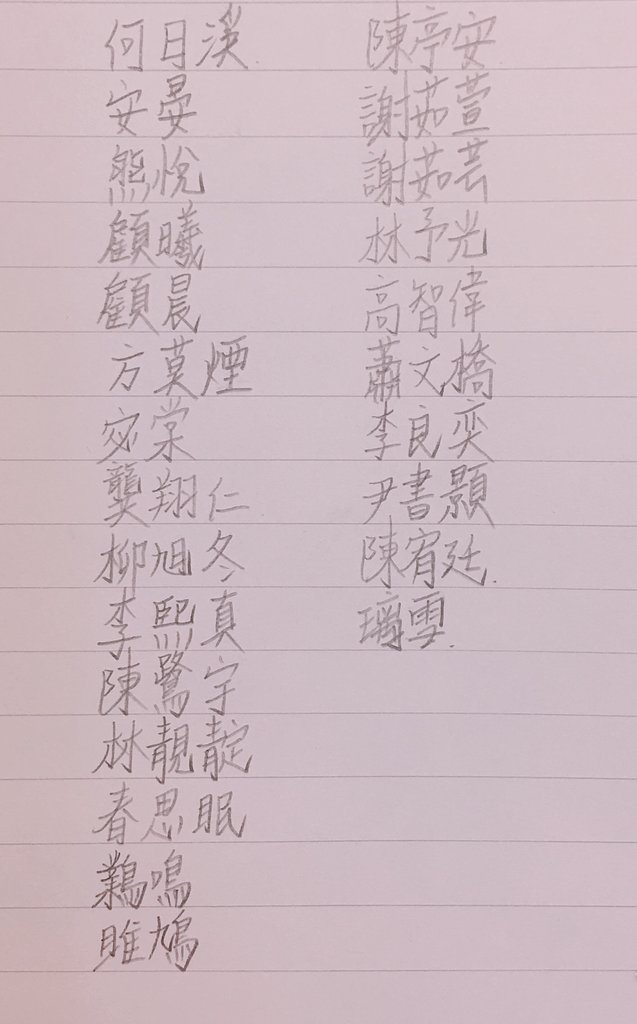 何日渓
安晏
熊悅
顧曦
顧晨
方莫煙
宓棠
龔翔仁
柳旭冬
李熙真
陳鷺宇
林靚靛
春思眠
鷍鳴
雎鳩
陳亭安
謝茹萱
謝茹芸
林予光
高智偉
蕭文橋
李良奕
尹書顥
陳宥廷
璃雪